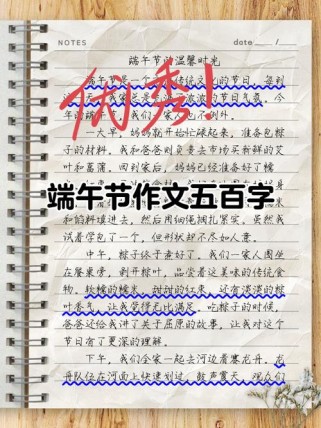 NOTES date / /
端午节的温馨时光
优秀！
端午节一个传统文化的节日，每到
的节日气氛。今
年的端午，我们一家人也不例外。
一大早，妈妈就开始忙碌起来，准备包粽
子的材料。我和爸爸则负责去市场买新鲜的艾
叶和菖蒲。回到家后，妈妈已经准备好了糯
端午节作文五百字
和馅料填进去，然后用细绳捆扎紧实。虽然我
试着学包了一个，但形状却不尽如人意。
中午，粽子终于煮好了。我们一家人围坐
在餐桌旁，剥开粽叶，品尝着这美味的传统食
物。软糯的糯米，甜甜的红枣，还有淡淡的粽
叶香气，让我觉得无比满足。吃粽子的时候，
爸爸还给我讲了关于屈原的故事，让我对这个
节日有了更深的理解。
下午，我们全家一起去河边看赛龙舟。龙
舟队伍在河面上快速划过，鼓声震天，观众们